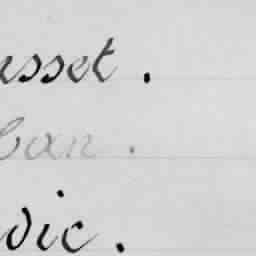 usset.
can.
dic.